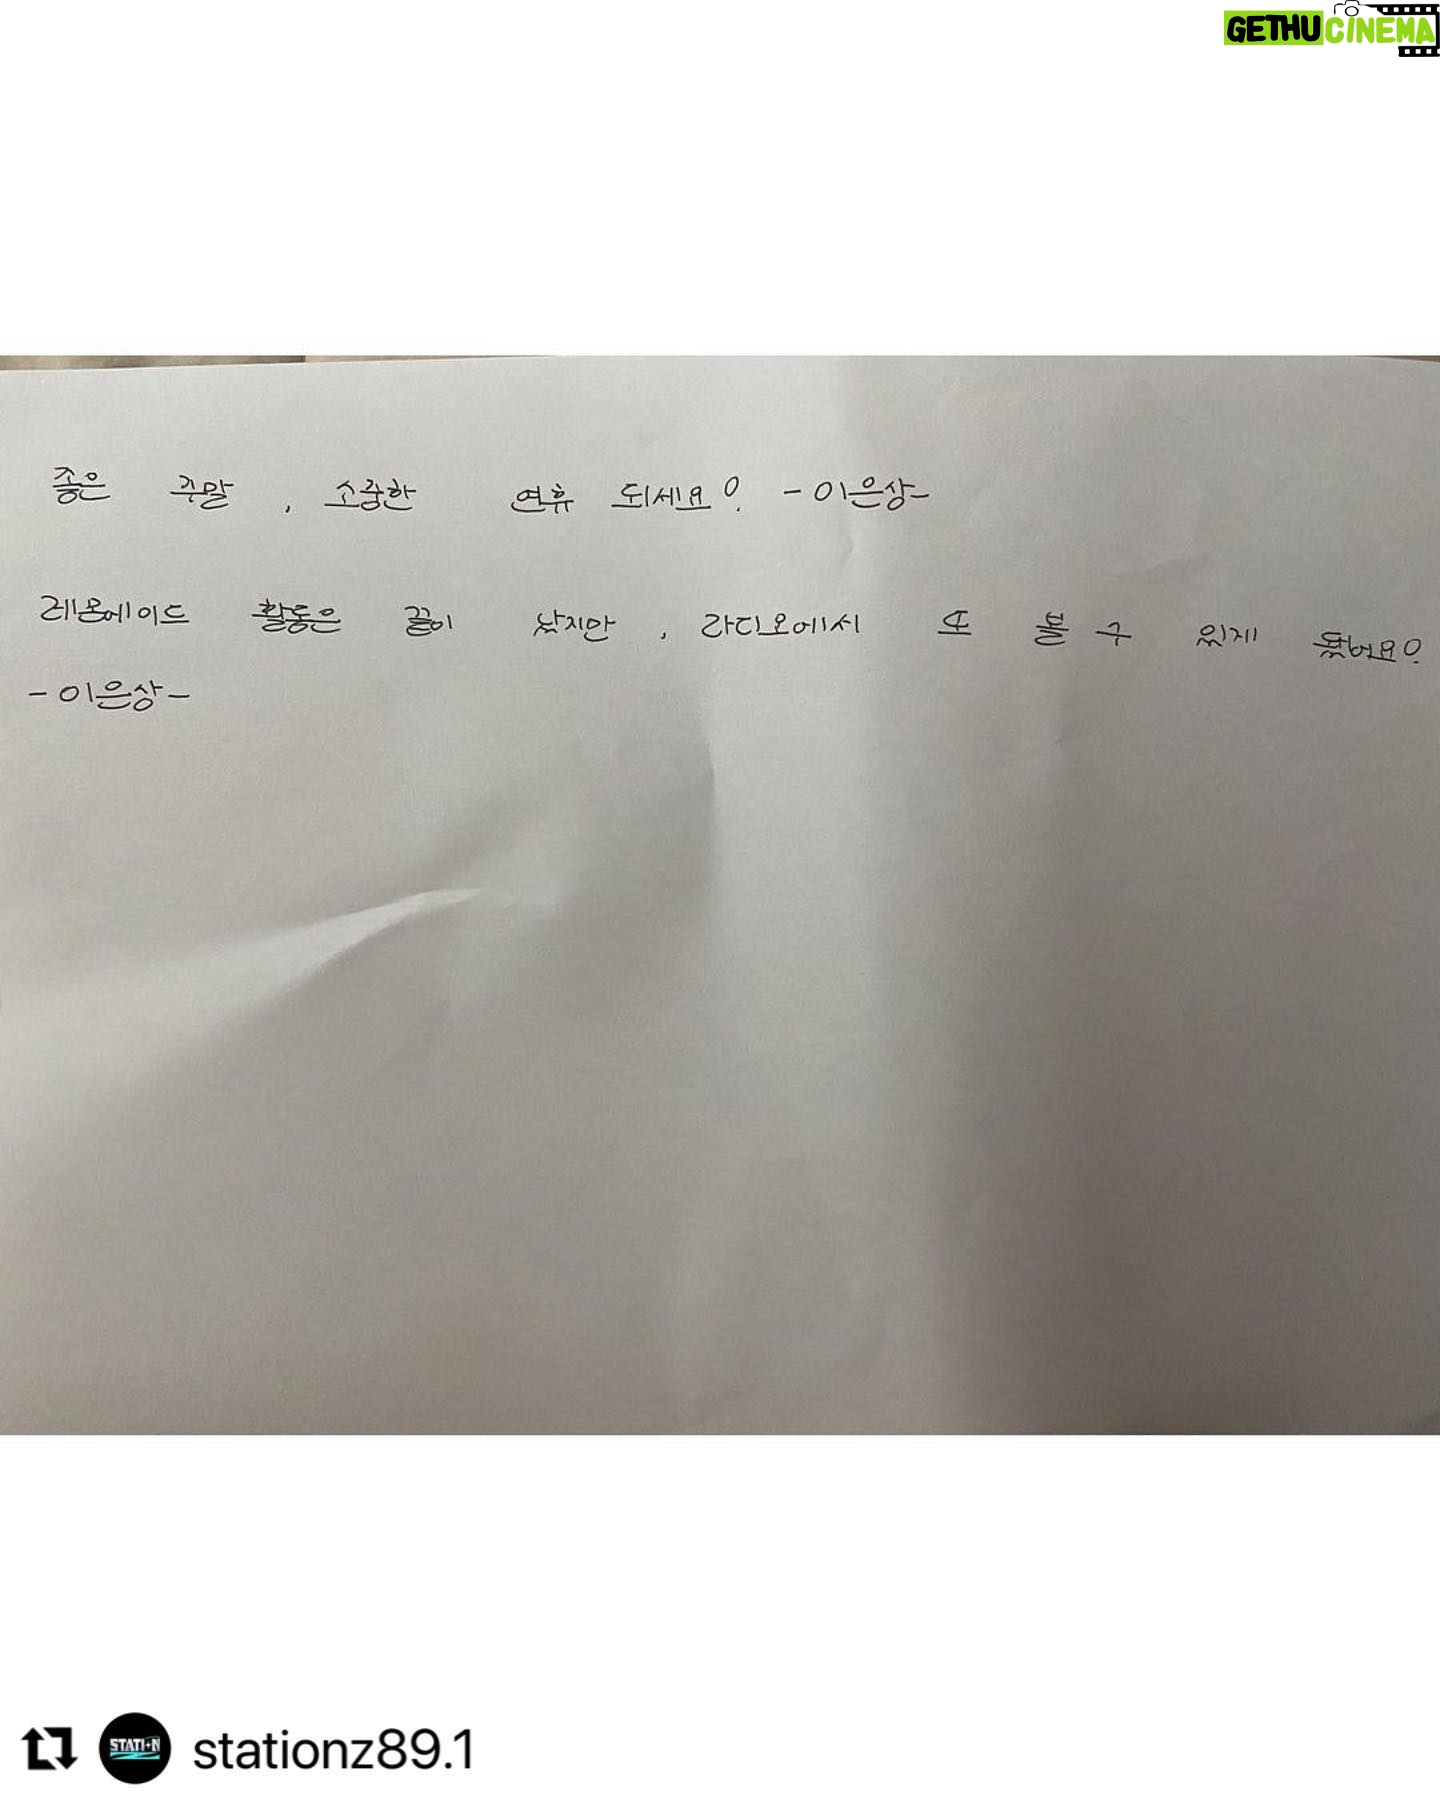 GETHUCINEMA
좋은 주말, 소중한 연휴 되세요! -이은상-
레몬에이드 활동은 끝이 났지만, 라디오에서 또 볼 수 있게 됐어요!
-이은상-
STATI+N
stationz89.1